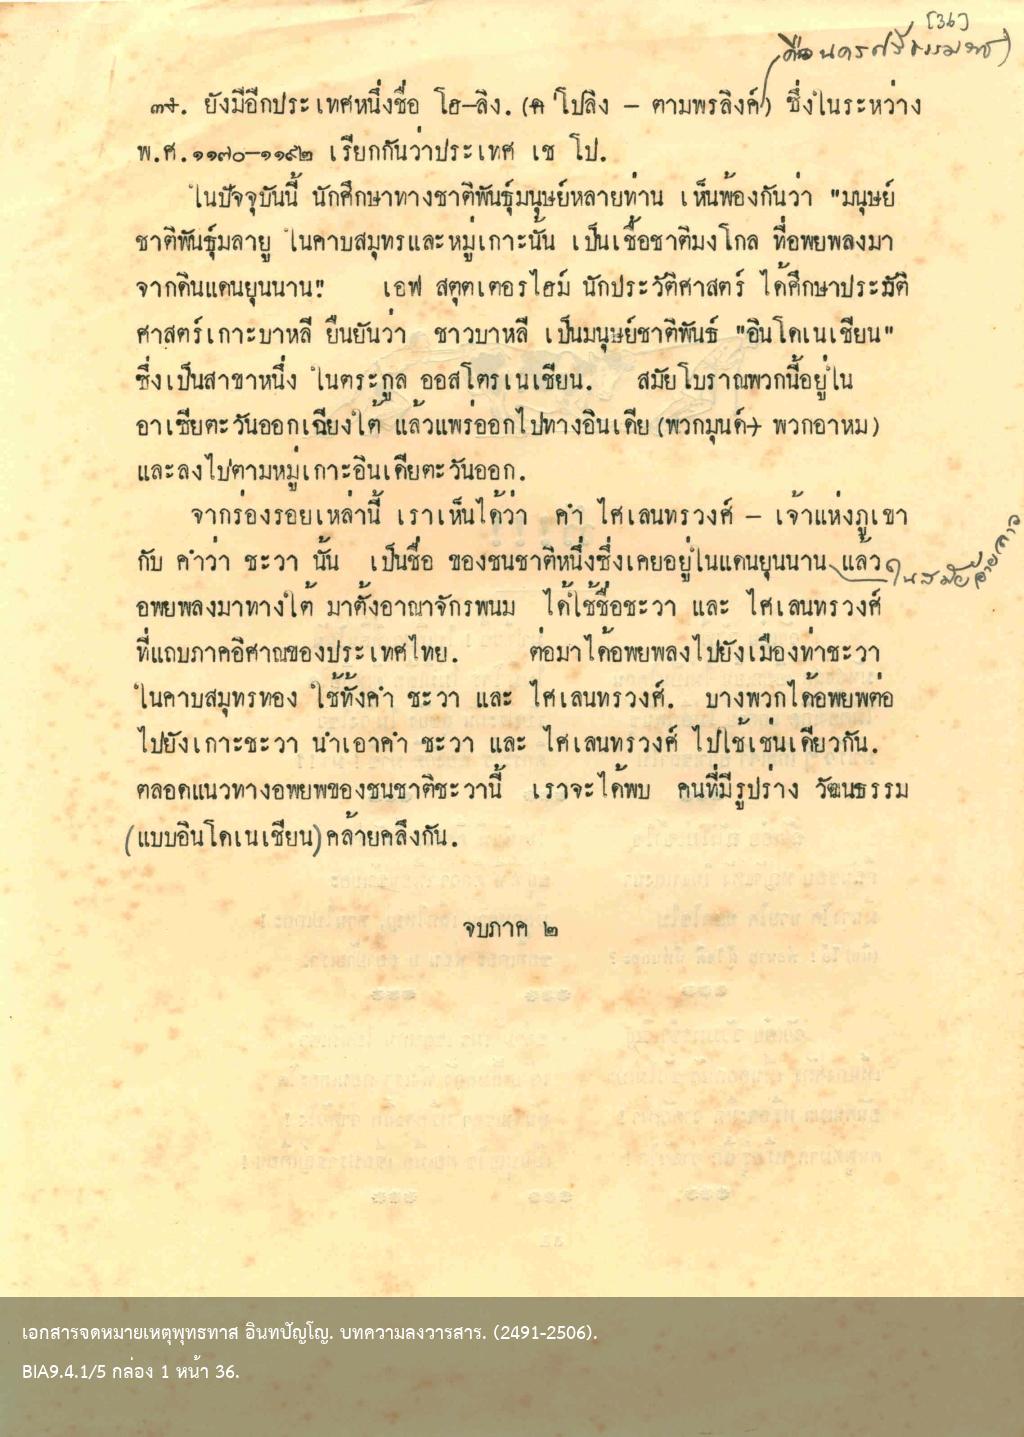 [36]
(คือนครศรีธรรมราช)
๓๗. ยังมีอีกประเทศหนึ่งชื่อ โฮ-ลิง. (ค โปลิง - ตามพรลิงค์) ซึ่งในระหว่าง
พ.ศ.๑๑๗๐-๑๑๙๒ เรียกกันว่าประเทศ เช โป.
ในปัจจุบันนี้ นักศึกษาทางชาติพันธุ์มนุษย์หลายท่าน เห็นพ้องกันว่า "มนุษย์
ชาติพันธุ์มลายู ในคาบสมุทรและหมู่เกาะนั้น เป็นเชื้อชาติมงโกล ที่อพยพลงมา
จากดินแดนยุนนาน." เอฟ สตุตเตอรไฮม์ นักประวัติศาสตร์ ได้ศึกษาประวัติ
ศาสตร์เกาะบาหลี ยืนยันว่า ชาวบาหลี เป็นมนุษย์ชาติพันธ์ "อินโดเนเซียน"
ซึ่งเป็นสาขาหนึ่ง ในตระกูล ออสโตรเนเซียน. สมัยโบราณพวกนี้อยู่ใน
อาเซียตะวันออกเฉียงใต้ แล้วแพร่ออกไปทางอินเดีย (พวกมุนด์ พวกอาหม)
และลงไปตามหมู่เกาะอินเดียตะวันออก.
จากร่องรอยเหล่านี้ เราเห็นได้ว่า คำ ไศเลนทรวงศ์ - เจ้าแห่งภูเขา
กับ คำว่า ชะวา นั้น เป็นชื่อ ของชนชาติหนึ่งซึ่งเคยอยู่ในแดนยุนนาน แล้ว ในสมัยอ้ายลาว
อพยพลงมาทางใต้ มาตั้งอาณาจักรพนม ได้ใช้ชื่อชะวา และ ไศเลนทรวงศ์
ที่แถบภาคอิศาณของประเทศไทย. ต่อมาได้อพยพลงไปยังเมืองท่าชะวา
ในคาบสมุทรทอง ใช้ทั้งคำ ชะวา และ ไศเลนทรวงศ์. บางพวกได้อพยพต่อ
ไปยังเกาะชะวา นำเอาคำ ชะวา และ ไศเลนทรวงศ์ ไปใช้เช่นเดียวกัน.
ตลอดแนวทางอพยพของชนชาติชะวานี้ เราจะได้พบ คนที่มีรูปร่าง วัฒนธรรม
(แบบอินโดเนเซียน) คล้ายคลึงกัน.
จบภาค ๒
เอกสารจดหมายเหตุพุทธทาส อินทปัญโญ. บทความลงวารสาร. (2491-2506).
BIA9.4.1/5 กล่อง 1 หน้า 36.